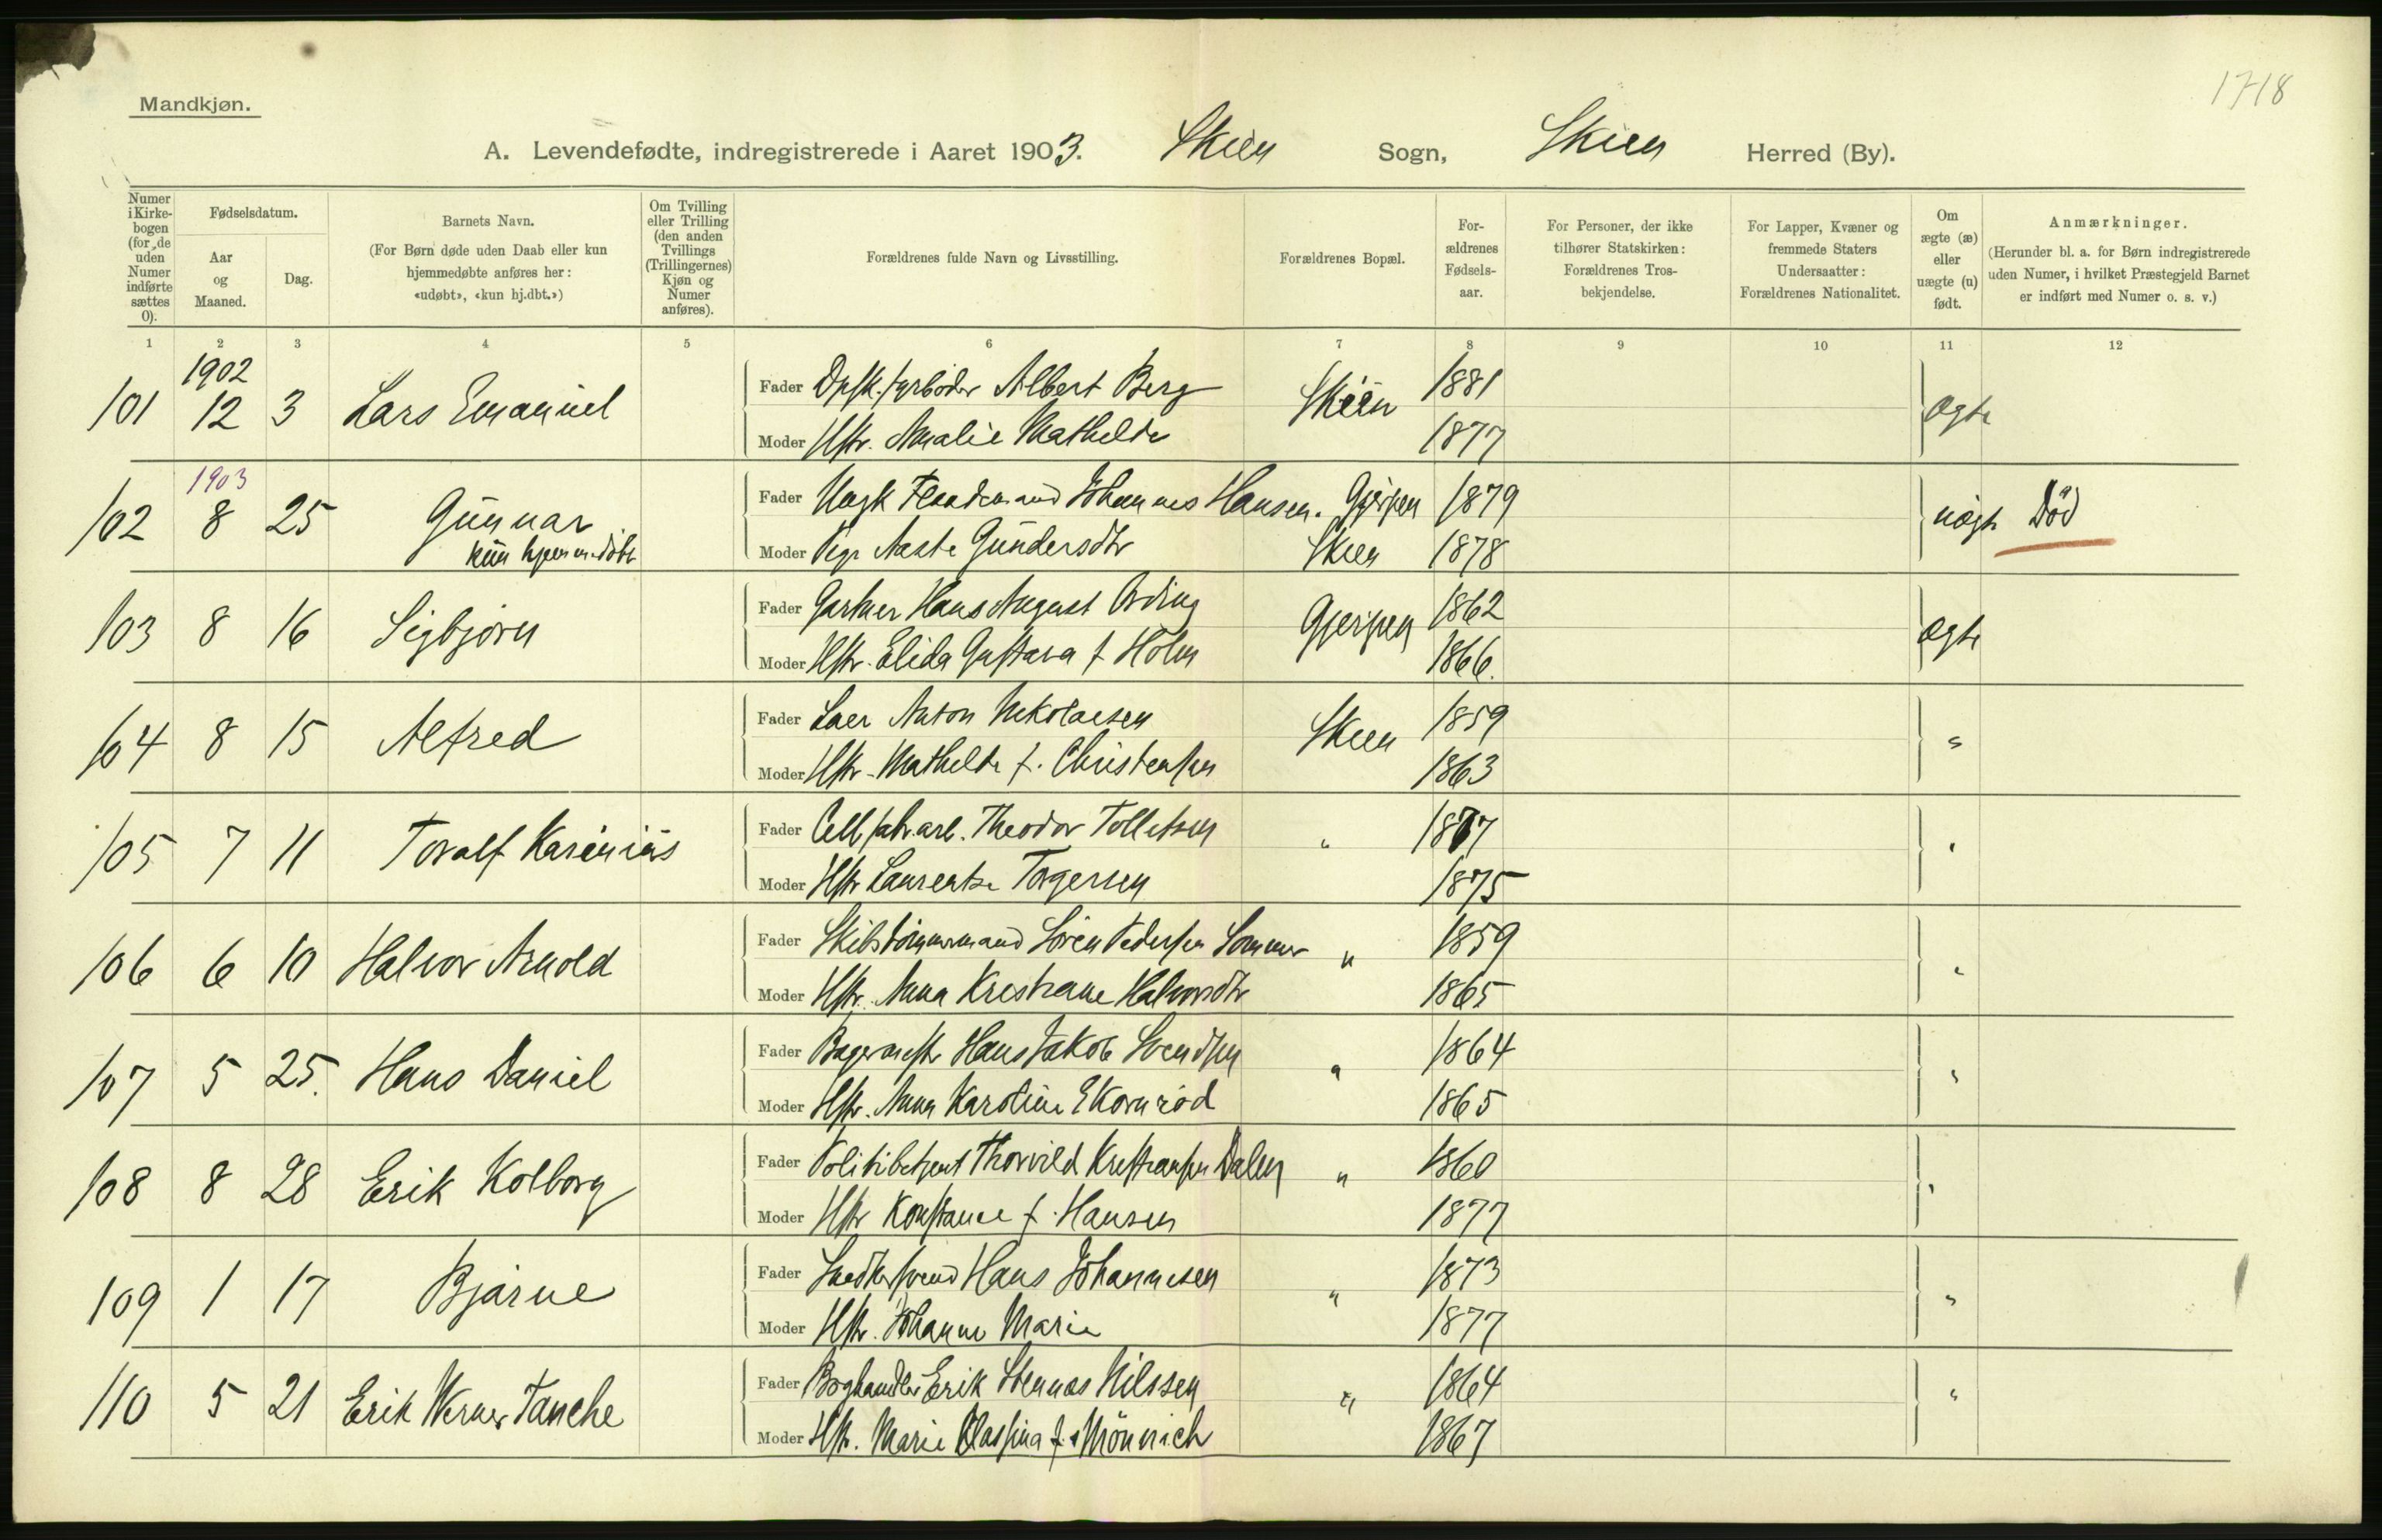 1718
Mandkjøn.
A. Levendefødte, indregistrerede i Aaret 1903. Skien Sogn, Skien Herred (By).
Numer i Kirke-bogen (for de uden Numer indførte sættes 0).
Fødselsdatum.
Aar og Maaned.
Dag.
Barnets Navn.
(For Børn døde uden Daab eller kun hjemmedøbte anføres her: «udøbt», «kun hj.dbt.»)
Om Tvilling eller Trilling (den anden Tvillings (Trillingernes) Kjøn og Numer anføres).
Forældrenes fulde Navn og Livsstilling.
Forældrenes Bopæl.
For-ældrenes Fødsels-aar.
For Personer, der ikke tilhører Statskirken: Forældrenes Tros-bekjendelse.
For Lapper, Kvæner og fremmede Staters Undersaatter: Forældrenes Nationalitet.
Om ægte (æ) eller uægte (u) født.
Anmærkninger.
(Herunder bl. a. for Børn indregistrerede uden Numer, i hvilket Præstegjeld Barnet er indført med Numer o. s. v.)
1 2 3 4 5 6 7 8 9 10 11 12
1902
101 12 3 Lars Emanuel Fader Dpsk.fyrbøder Albert Berg Skien 1881 Ægte
Moder Hstr. Amalie Mathilde 1877
1903
102 8 25 Gunnar Fader Johannes Hansen. Gjerpen 1879 uægte Død
kun hjemmedøbt Moder Pige Aaste Gundersdtr Skien 1878
103 8 16 Sigbjørn Fader Gartner Hans August Ording Gjerpen 1862 Ægte
Moder Hstr. Elida Gustava f. Holm 1866.
104 8 15 Alfred Fader Anton Nikolaisen Skien 1859 "
Moder Hstr. Mathilde f. Christensen 1863
105 7 11 Toralf Karinius Fader Cell.fabr.arb. Theodor Tollefsen " 1877 "
Moder Hstr Laurentse Torgersen 1875
106 6 10 Halvor Arnold Fader Skibstømmermand Søren Pedersen Sommer " 1859 "
Moder Hstr. Anna Kristiane Halvorsdtr 1865
107 5 25. Hans Daniel Fader Bagermestr Hans Jakob Svendsen " 1864 "
Moder Hstr. Anna Karoline Ekornrød 1865
108 8 28 Erik Kolborg Fader Politibetjent Thorvild Kristiansen Dalen " 1860 "
Moder Hstr Konstance f. Hansen 1877
109 1 17 Bjarne Fader Snedkersvend Hans Johannesen " 1873 "
Moder Hstr. Johanne Marie 1877
110 5 21 Erik Werner Tanche Fader Boghandler Erik Stennæs Nilssen " 1864 "
Moder Hstr. Marie Classina f. Mönnich 1867